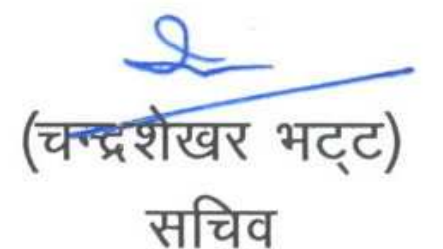 (चन्द्रशेखर भट्ट)
सचिव